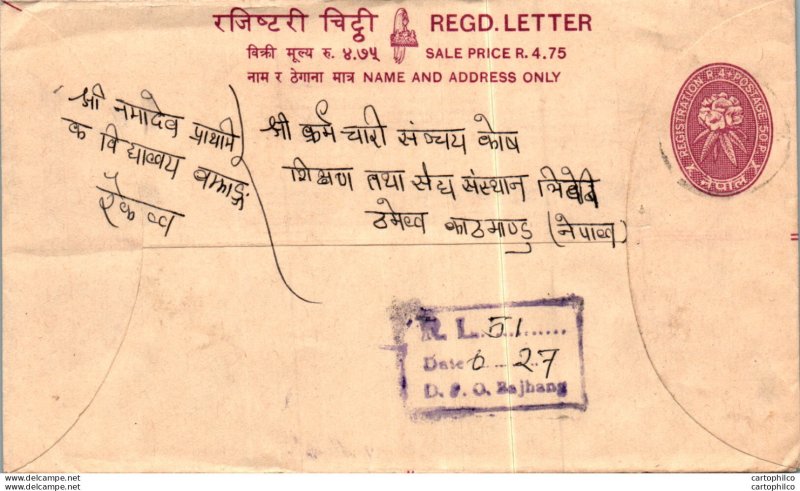 रजिष्टरी चिट्ठी REGD. LETTER
बिक्री मूल्य रु. ४.७५ SALE PRICE R. 4.75
नाम र ठेगाना मात्र NAME AND ADDRESS ONLY
REGISTRATION R. 4 + POSTAGE 50 P.
नेपाल
श्री नमादेव प्राथमि
क विद्यालय
श्री कर्मचारी संञ्चय कोष
शिक्षण तथा संस्थान
ठमेल काठमाण्डु (नेपाल)
R. L. 51
Date 6 27
D. P. O. Bajhang
www.delcampe.net
cartophilco
www.delcampe.net
cartophilco